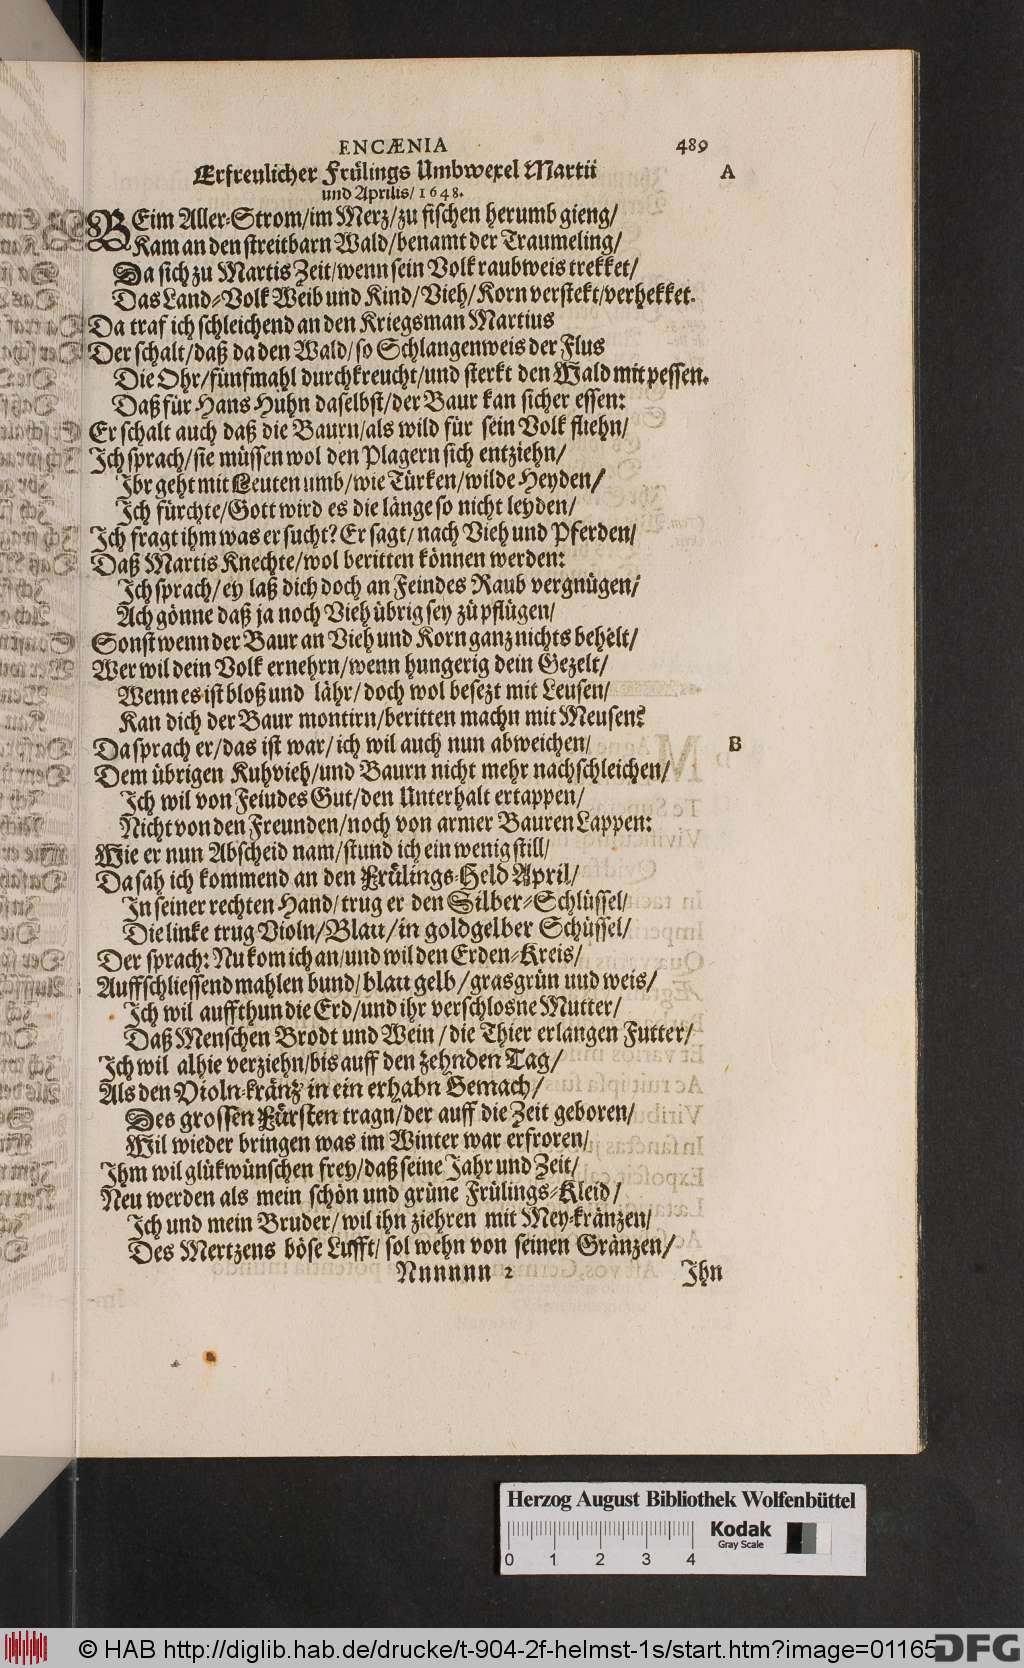 ENCÆNIA 489
Erfreulicher Frülings Umbwexel Martii A
und Aprilis/ 1648.
BEim Aller-Strom/im Merz/zu fischen herumb gieng/
Kam an den streitbarn Wald/benamt der Traumeling/
Da sich zu Martis Zeit/wenn sein Volk raubweis trekket/
Das Land-Volk Weib und Kind/Vieh/Korn verstekt/verhekket.
Da traf ich schleichend an den Kriegsman Martius
Der schalt/daß da den Wald/so Schlangenweis der Flus
Die Ohr/fünfmahl durchkreucht/und sterkt den Wald mit pessen.
Daß für Hans Huhn daselbst/der Baur kan sicher essen:
Er schalt auch daß die Baurn/als wild für sein Volk fliehn/
Ich sprach/sie müssen wol den Plagern sich entziehn/
Ihr geht mit Leuten umb/wie Türken/wilde Heyden/
Ich fürchte/Gott wird es die länge so nicht leyden/
Ich fragt ihm was er sucht? Er sagt/nach Vieh und Pferden/
Daß Martis Knechte/wol beritten können werden:
Ich sprach/ey laß dich doch an Feindes Raub vergnügen/
Ach gönne daß ja noch Vieh übrig sey zü pflügen/
Sonst wenn der Baur an Vieh und Korn ganz nichts behelt/
Wer wil dein Volk ernehrn/wenn hungerig dein Gezelt/
Wenn es ist bloß und lähr/doch wol besezt mit Leusen/
Kan dich der Baur montirn/beritten machn mit Meusen?
Da sprach er/das ist war/ich wil auch nun abweichen/ B
Dem übrigen Kuhvieh/und Baurn nicht mehr nachschleichen/
Ich wil von Feiudes Gut/den Unterhalt ertappen/
Nicht von den Freunden/noch von armer Bauren Lappen:
Wie er nun Abscheid nam/stund ich ein wenig still/
Da sah ich kommend an den Frülings-Held April/
In seiner rechten Hand/trug er den Silber-Schlüssel/
Die linke trug Violn/Blau/in goldgelber Schüssel/
Der sprach: Nu kom ich an/und wil den Erden-Kreis/
Auffschliessend mahlen bund/blau gelb/grasgrün uud weis/
Ich wil auffthun die Erd/und ihr verschlosne Mutter/
Daß Menschen Brodt und Wein/die Thier erlangen Futter/
Ich wil alhie verziehn/bis auff den zehnden Tag/
Als den Violn-kränz in ein erhabn Gemach/
Des grossen Fürsten tragn/der auff die Zeit geboren/
Wil wieder bringen was im Winter war erfroren/
Ihm wil glükwünschen frey/daß seine Jahr und Zeit/
Neu werden als mein schön und grüne Frülings-Kleid/
Ich und mein Bruder/wil ihn ziehren mit Mey-kränzen/
Des Mertzens böse Lufft/sol wehn von seinen Gränzen/
Nnnnnn 2 Ihn
Herzog August Bibliothek Wolfenbüttel
0 1 2 3 4
Kodak
Gray Scale
© HAB http://diglib.hab.de/drucke/t-904-2f-helmst-1s/start.htm?image=01165
DFG